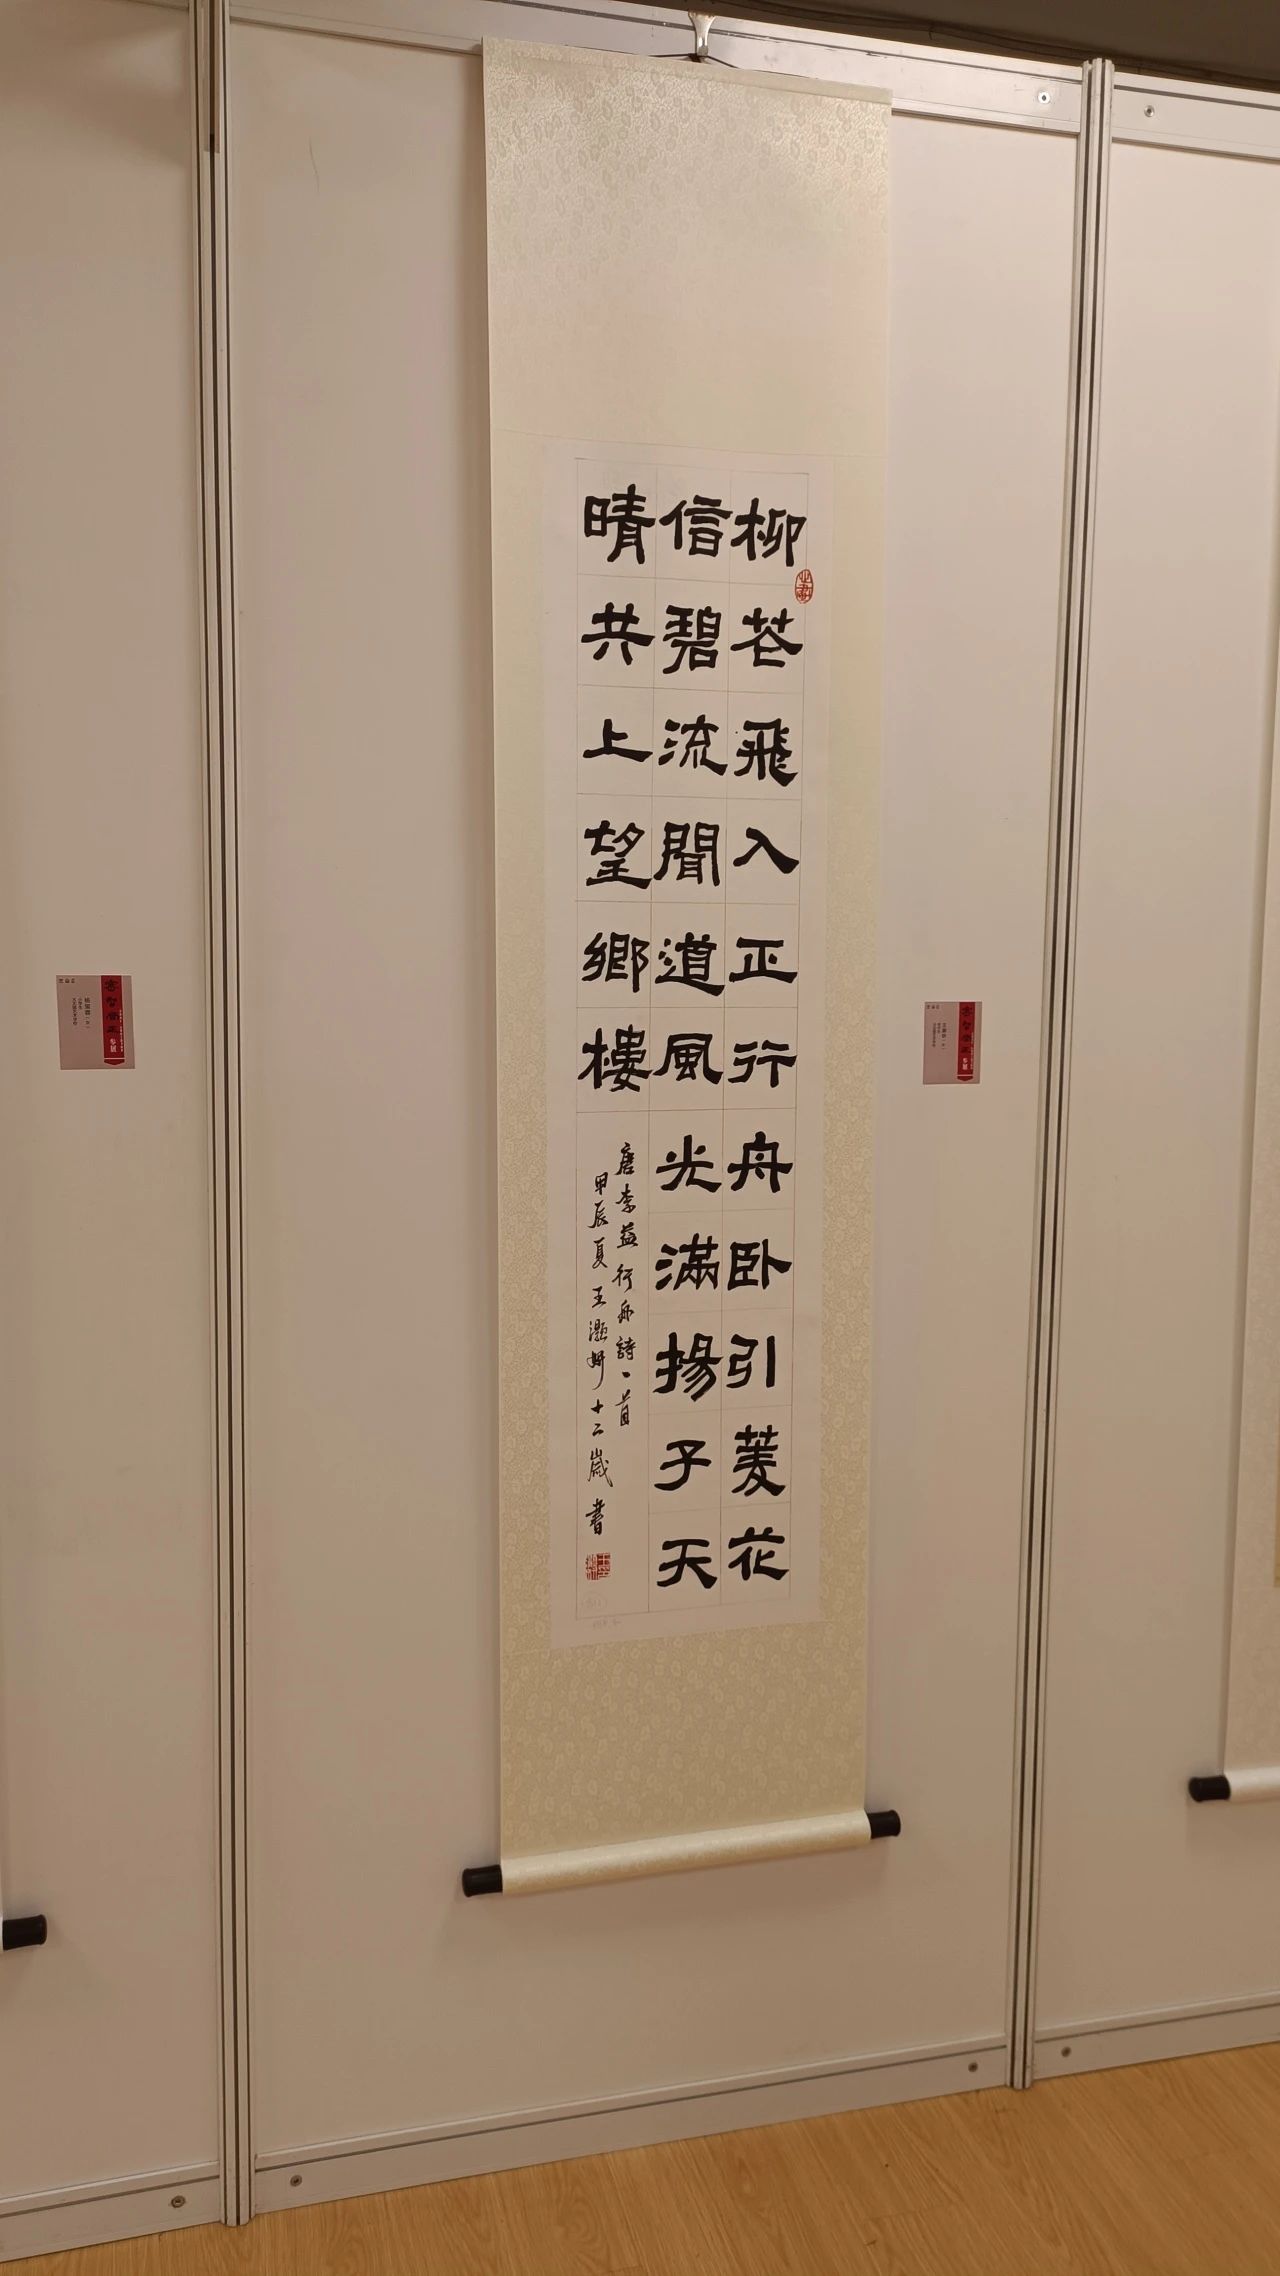 柳芲飛入正行舟卧引菱花
信碧流聞道風光滿揚子天
晴共上望鄉樓
唐李益行舟詩一首
甲辰夏王灝妍十二歲書